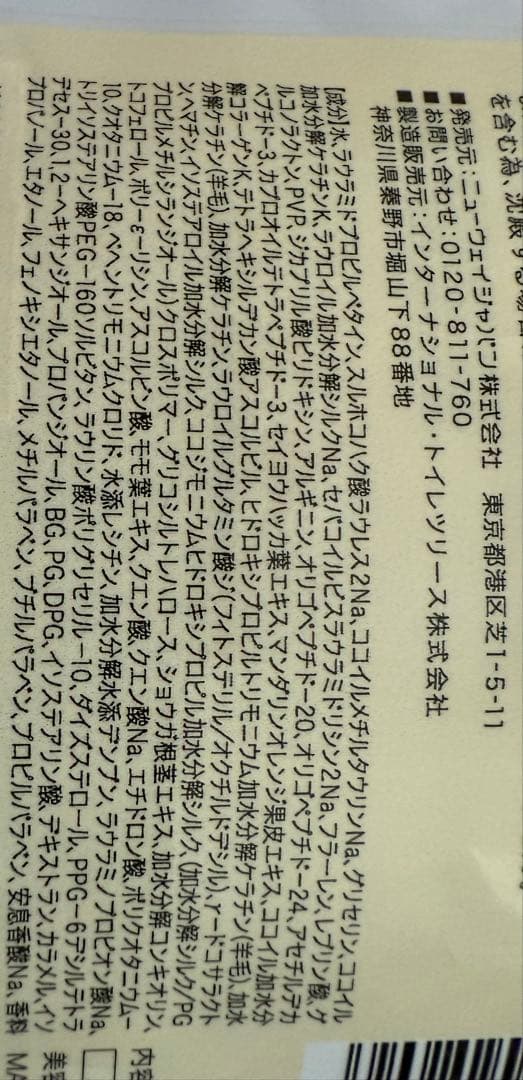 を含む為、洗
■発売元：ニューウェイジャパン株式会社 東京都港区芝1-5-11
■お問い合わせ：0120-811-760
■製造販売元：インターナショナル・トイレツリース株式会社
神奈川県秦野市堀山下88番地
[成分]水、ラウラミドプロピルベタイン、スルホコハク酸ラウレス2Na、ココイルメチルタウリンNa、グリセリン、ココイル
加水分解ケラチンK、ラウロイル加水分解シルクNa、セバコイルビスラウラミドリシン2Na、フラーレン、レブリン酸、グ
ルコノラクトン、PVP、ジカプリル酸ピリドキシン、アルギニン、オリゴペプチド-20、オリゴペプチド-24、アセチルデカ
ペプチド-3、カプロオイルテトラペプチド-3、セイヨウハッカ葉エキス、マンダリンオレンジ果皮エキス、ココイル加水分
解コラーゲンK、テトラヘキシルデカン酸アスコルビル、ヒドロキシプロピルトリモニウム加水分解ケラチン(羊毛)、加水
分解ケラチン(羊毛)、加水分解ケラチン、ラウロイルグルタミン酸ジ(フィトステリル/オクチルドデシル)、γ-ドコサラクト
ン、ヘマチン、イソステアロイル加水分解シルク、ココジモニウムヒドロキシプロピル加水分解シルク、(加水分解シルク/PG
プロピルメチルシランジオール)クロスポリマー、グリコシルトレハロース、ショウガ根茎エキス、加水分解コンキオリン、
トコフェロール、ポリ-ε-リシン、アスコルビン酸、モモ葉エキス、クエン酸、クエン酸Na、エチドロン酸、ポリクオタニウム-
10、クオタニウム-18、ベヘントリモニウムクロリド、水添レシチン、加水分解水添デンプン、ラウラミノプロピオン酸Na、
トリイソステアリン酸PEG-160ソルビタン、ラウリン酸ポリグリセリル-10、ダイズステロール、PPG-6デシルテトラ
デセス-30、1,2-ヘキサンジオール、プロパンジオール、BG、PG、DPG、イソステアリン酸、デキストラン、カラメル、イソ
プロパノール、エタノール、フェノキシエタノール、メチルパラベン、ブチルパラベン、プロピルパラベン、安息香酸Na、香料
内容
美容
MA